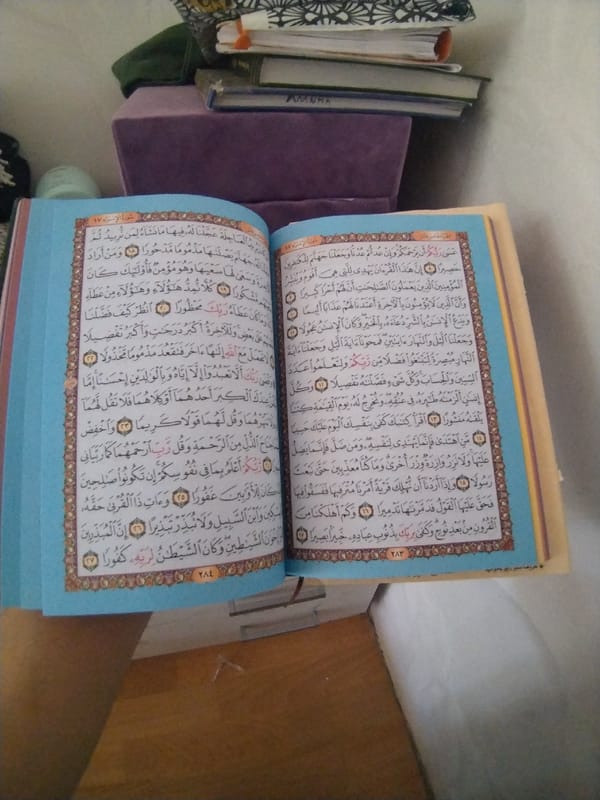 عَسَىٰ رَبُّكُمْ أَن يَرْحَمَكُمْ وَإِنْ عُدتُّمْ عُدْنَا وَجَعَلْنَا جَهَنَّمَ لِلْكَٰفِرِينَ
حَصِيرًا ٨ إِنَّ هَٰذَا ٱلْقُرْءَانَ يَهْدِى لِلَّتِى هِىَ أَقْوَمُ وَيُبَشِّرُ
ٱلْمُؤْمِنِينَ ٱلَّذِينَ يَعْمَلُونَ ٱلصَّٰلِحَٰتِ أَنَّ لَهُمْ أَجْرًا كَبِيرًا ٩
وَأَنَّ ٱلَّذِينَ لَا يُؤْمِنُونَ بِٱلْءَاخِرَةِ أَعْتَدْنَا لَهُمْ عَذَابًا أَلِيمًا ١٠
وَيَدْعُ ٱلْإِنسَٰنُ بِٱلشَّرِّ دُعَآءَهُۥ بِٱلْخَيْرِ وَكَانَ ٱلْإِنسَٰنُ عَجُولًا ١١
وَجَعَلْنَا ٱلَّيْلَ وَٱلنَّهَارَ ءَايَتَيْنِ فَمَحَوْنَآ ءَايَةَ ٱلَّيْلِ وَجَعَلْنَآ ءَايَةَ
ٱلنَّهَارِ مُبْصِرَةً لِّتَبْتَغُوا۟ فَضْلًا مِّن رَّبِّكُمْ وَلِتَعْلَمُوا۟ عَدَدَ
ٱلسِّنِينَ وَٱلْحِسَابَ وَكُلَّ شَىْءٍ فَصَّلْنَٰهُ تَفْصِيلًا ١٢ وَكُلَّ
إِنسَٰنٍ أَلْزَمْنَٰهُ طَٰٓئِرَهُۥ فِى عُنُقِهِۦ وَنُخْرِجُ لَهُۥ يَوْمَ ٱلْقِيَٰمَةِ كِتَٰبًا
يَلْقَىٰهُ مَنشُورًا ١٣ ٱقْرَأْ كِتَٰبَكَ كَفَىٰ بِنَفْسِكَ ٱلْيَوْمَ عَلَيْكَ حَسِيبًا
١٤ مَّنِ ٱهْتَدَىٰ فَإِنَّمَا يَهْتَدِى لِنَفْسِهِۦ وَمَن ضَلَّ فَإِنَّمَا يَضِلُّ
عَلَيْهَا وَلَا تَزِرُ وَازِرَةٌ وِزْرَ أُخْرَىٰ وَمَا كُنَّا مُعَذِّبِينَ حَتَّىٰ نَبْعَثَ
رَسُولًا ١٥ وَإِذَآ أَرَدْنَآ أَن نُّهْلِكَ قَرْيَةً أَمَرْنَا مُتْرَفِيهَا فَفَسَقُوا۟ فِيهَا
فَحَقَّ عَلَيْهَا ٱلْقَوْلُ فَدَمَّرْنَٰهَا تَدْمِيرًا ١٦ وَكَمْ أَهْلَكْنَا مِنَ
ٱلْقُرُونِ مِنۢ بَعْدِ نُوحٍ وَكَفَىٰ بِرَبِّكَ بِذُنُوبِ عِبَادِهِۦ خَبِيرًۢا بَصِيرًا ١٧
٢٨٣
ٱلْعَاجِلَةَ عَجَّلْنَا لَهُۥ فِيهَا مَا نَشَآءُ لِمَن نُّرِيدُ ثُمَّ
جَهَنَّمَ يَصْلَىٰهَا مَذْمُومًا مَّدْحُورًا ١٨ وَمَنْ أَرَادَ
وَسَعَىٰ لَهَا سَعْيَهَا وَهُوَ مُؤْمِنٌ فَأُو۟لَٰٓئِكَ كَانَ
مَّشْكُورًا ١٩ كُلًّا نُّمِدُّ هَٰٓؤُلَآءِ وَهَٰٓؤُلَآءِ مِنْ عَطَآءِ
كَانَ عَطَآءُ رَبِّكَ مَحْظُورًا ٢٠ ٱنظُرْ كَيْفَ فَضَّلْنَا
عَلَىٰ بَعْضٍ وَلَلْءَاخِرَةُ أَكْبَرُ دَرَجَٰتٍ وَأَكْبَرُ تَفْضِيلًا
٢١ لَّا تَجْعَلْ مَعَ ٱللَّهِ إِلَٰهًا ءَاخَرَ فَتَقْعُدَ مَذْمُومًا مَّخْذُولًا ٢٢
وَقَضَىٰ رَبُّكَ أَلَّا تَعْبُدُوٓا۟ إِلَّآ إِيَّاهُ وَبِٱلْوَٰلِدَيْنِ إِحْسَٰنًا إِمَّا
عِندَكَ ٱلْكِبَرَ أَحَدُهُمَآ أَوْ كِلَاهُمَا فَلَا تَقُل لَّهُمَآ
تَنْهَرْهُمَا وَقُل لَّهُمَا قَوْلًا كَرِيمًا ٢٣ وَٱخْفِضْ
جَنَاحَ ٱلذُّلِّ مِنَ ٱلرَّحْمَةِ وَقُل رَّبِّ ٱرْحَمْهُمَا كَمَا رَبَّيَانِى
رَّبُّكُمْ أَعْلَمُ بِمَا فِى نُفُوسِكُمْ إِن تَكُونُوا۟ صَٰلِحِينَ
كَانَ لِلْأَوَّٰبِينَ غَفُورًا ٢٥ وَءَاتِ ذَا ٱلْقُرْبَىٰ حَقَّهُۥ
وَٱلْمِسْكِينَ وَٱبْنَ ٱلسَّبِيلِ وَلَا تُبَذِّرْ تَبْذِيرًا ٢٦ إِنَّ ٱلْمُبَذِّرِينَ
إِخْوَٰنَ ٱلشَّيَٰطِينِ وَكَانَ ٱلشَّيْطَٰنُ لِرَبِّهِۦ كَفُورًا ٢٧
٢٨٤